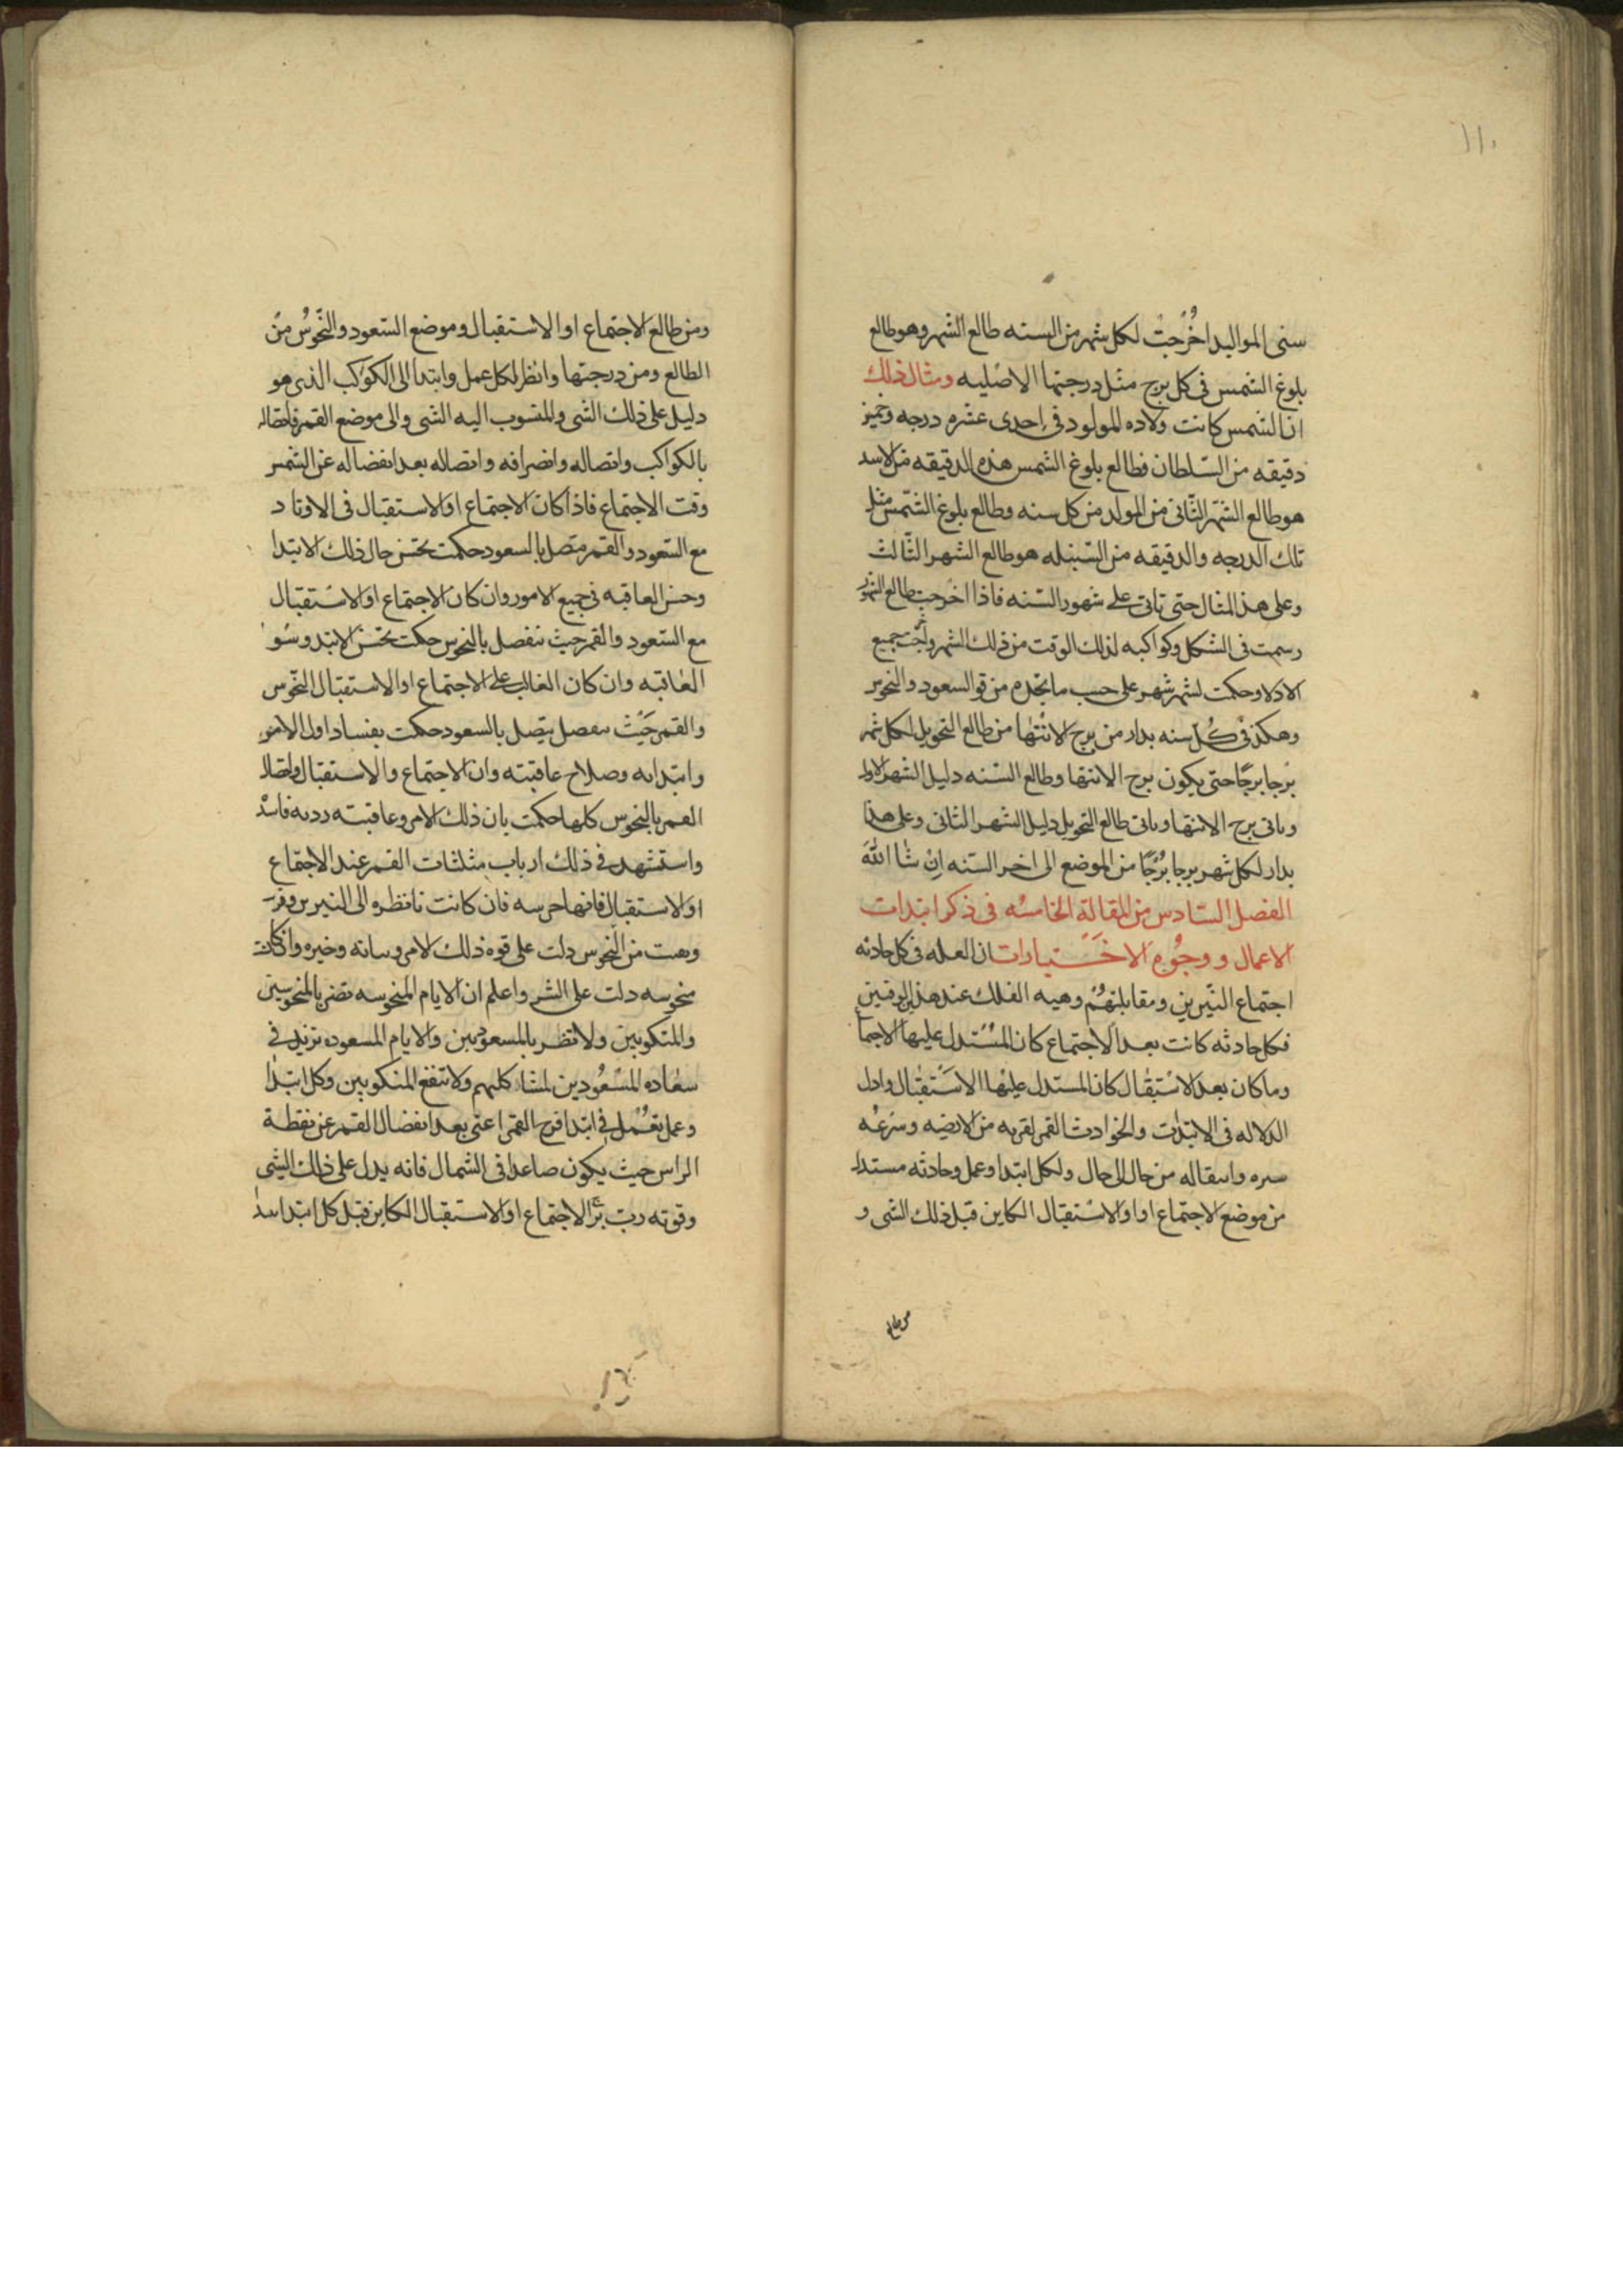 ١١٠
سنى المواليد اخرجت لكل شهر من السنه طالع الشهر وهو طالع
بلوغ الشمس فى كل برج مثل درجتها الاصليه ومثال ذلك
ان الشمس كانت ولاده المولود فى احدى عشره درجه وخمين
دقيقه من السلطان فطالع بلوغ الشمس هذه الدقيقه من الاسد
هو طالع الشهر الثانى من المولد من كل سنه وطالع بلوغ الشمس مثل
تلك الدرجه والدقيقه من السنبله هو طالع الشهر الثالث
وعلى هذ المثال حتى تاتى على شهور السنه فاذا اخرجت طالع الشهور
رسمت فى الشكل وكواكبه لذلك الوقت من ذلك الشهر جميع
الادلا وحكمت لشهر شهر على حسب ما تجده من قو السعود والنحوس
وهكذ فى كل سنه بدار من برج الانتها من طالع التحويل لكل شهر
برجا برجا حتى يكون برج الانتها وطالع السنه دليل الشهر الاول
وثانى برج الانتها وثانى طالع التحويل دليل الشهر الثانى وعلى هذا
بدار لكل شهر برجا برجا من الموضع الى اخر السنه ان شا الله
الفصل السادس من المقالة الخامسه فى ذكر ابتدات
الاعمال و وجوه الاختيارات ان العله فى كل حادثه
اجتماع النيرين ومقابلتهم وهيه الفلك عند هذين الوقتين
فكل حادثه كانت بعد الاجتماع كان المستدل عليها الاجما
وما كان بعد الاستقبال كان المستدل عليها الاستقبال وادل
الدلاله فى الابتدات والحوادث القمر لقربه من الارضيه وسرعه
سيره وانتقاله من حال الى حال ولكل ابتدا وعمل وحادثه مستدل
من موضع الاجتماع او اوالاستقبال الكاين قبل ذلك الشى و
من طالع
ومن طالع الاجتماع او الاستقبال وموضع السعود والنحوس من
الطالع ومن درجتها وانظر لكل عمل وابتدا الى الكوكب الذى هو
دليل على ذلك الشى والمنسوب اليه الشى والى موضع القمر واتصاله
بالكواكب واتصاله وانصرافه واتصاله بعد انفصاله عن الشمس
وقت الاجتماع فاذا كان الاجتماع اوالاستقبال فى الاوتاد
مع السعود والقمر متصل بالسعود حكمت بحسن حال ذلك الابتدا
وحسن العاقبه فى جميع الامور وان كان الاجتماع اوالاستقبال
مع السعود والقمر حيث ينفصل بالنحوس حكمت بحسن الابتد وسو
العاقبه وان كان الغالب على الاجتماع اوالاستقبال النحوس
والقمر حيث ينفصل يتصل بالسعود حكمت بفساد اول الامور
وابتدايه وصلاح عاقبته وان الاجتماع والاستقبال واتصال
القمر بالنحوس كلها حكمت بان ذلك الامر وعاقبته رديه فاسد
واستشهد فى ذلك ارباب مثلثات القمر عند الاجتماع
اوالاستقبال فانها فان كانت ناظره الى النيرين
من النحوس دلت على قوه ذلك الامر وخيره واذ كانت
منحوسه دلت على الشر واعلم ان الايام المنحوسه تضر بالمنحوسين
والمنكوبين ولا تضر بالمسعودين والايام المسعوده تزيد فى
سعاده المسعودين لمشاكلتهم ولا تنفع المنكوبين وكل ابتدا
وعمل يعمل فى ابتدا فرح القمر اعنى بعد انفصال القمر عن نقطة
الراس حيث يكون صاعدا فى الشمال فانه يدل على ذلك الشى
وقوته رب الاجتماع اوالاستقبال الكاين قبل كل ابتدا